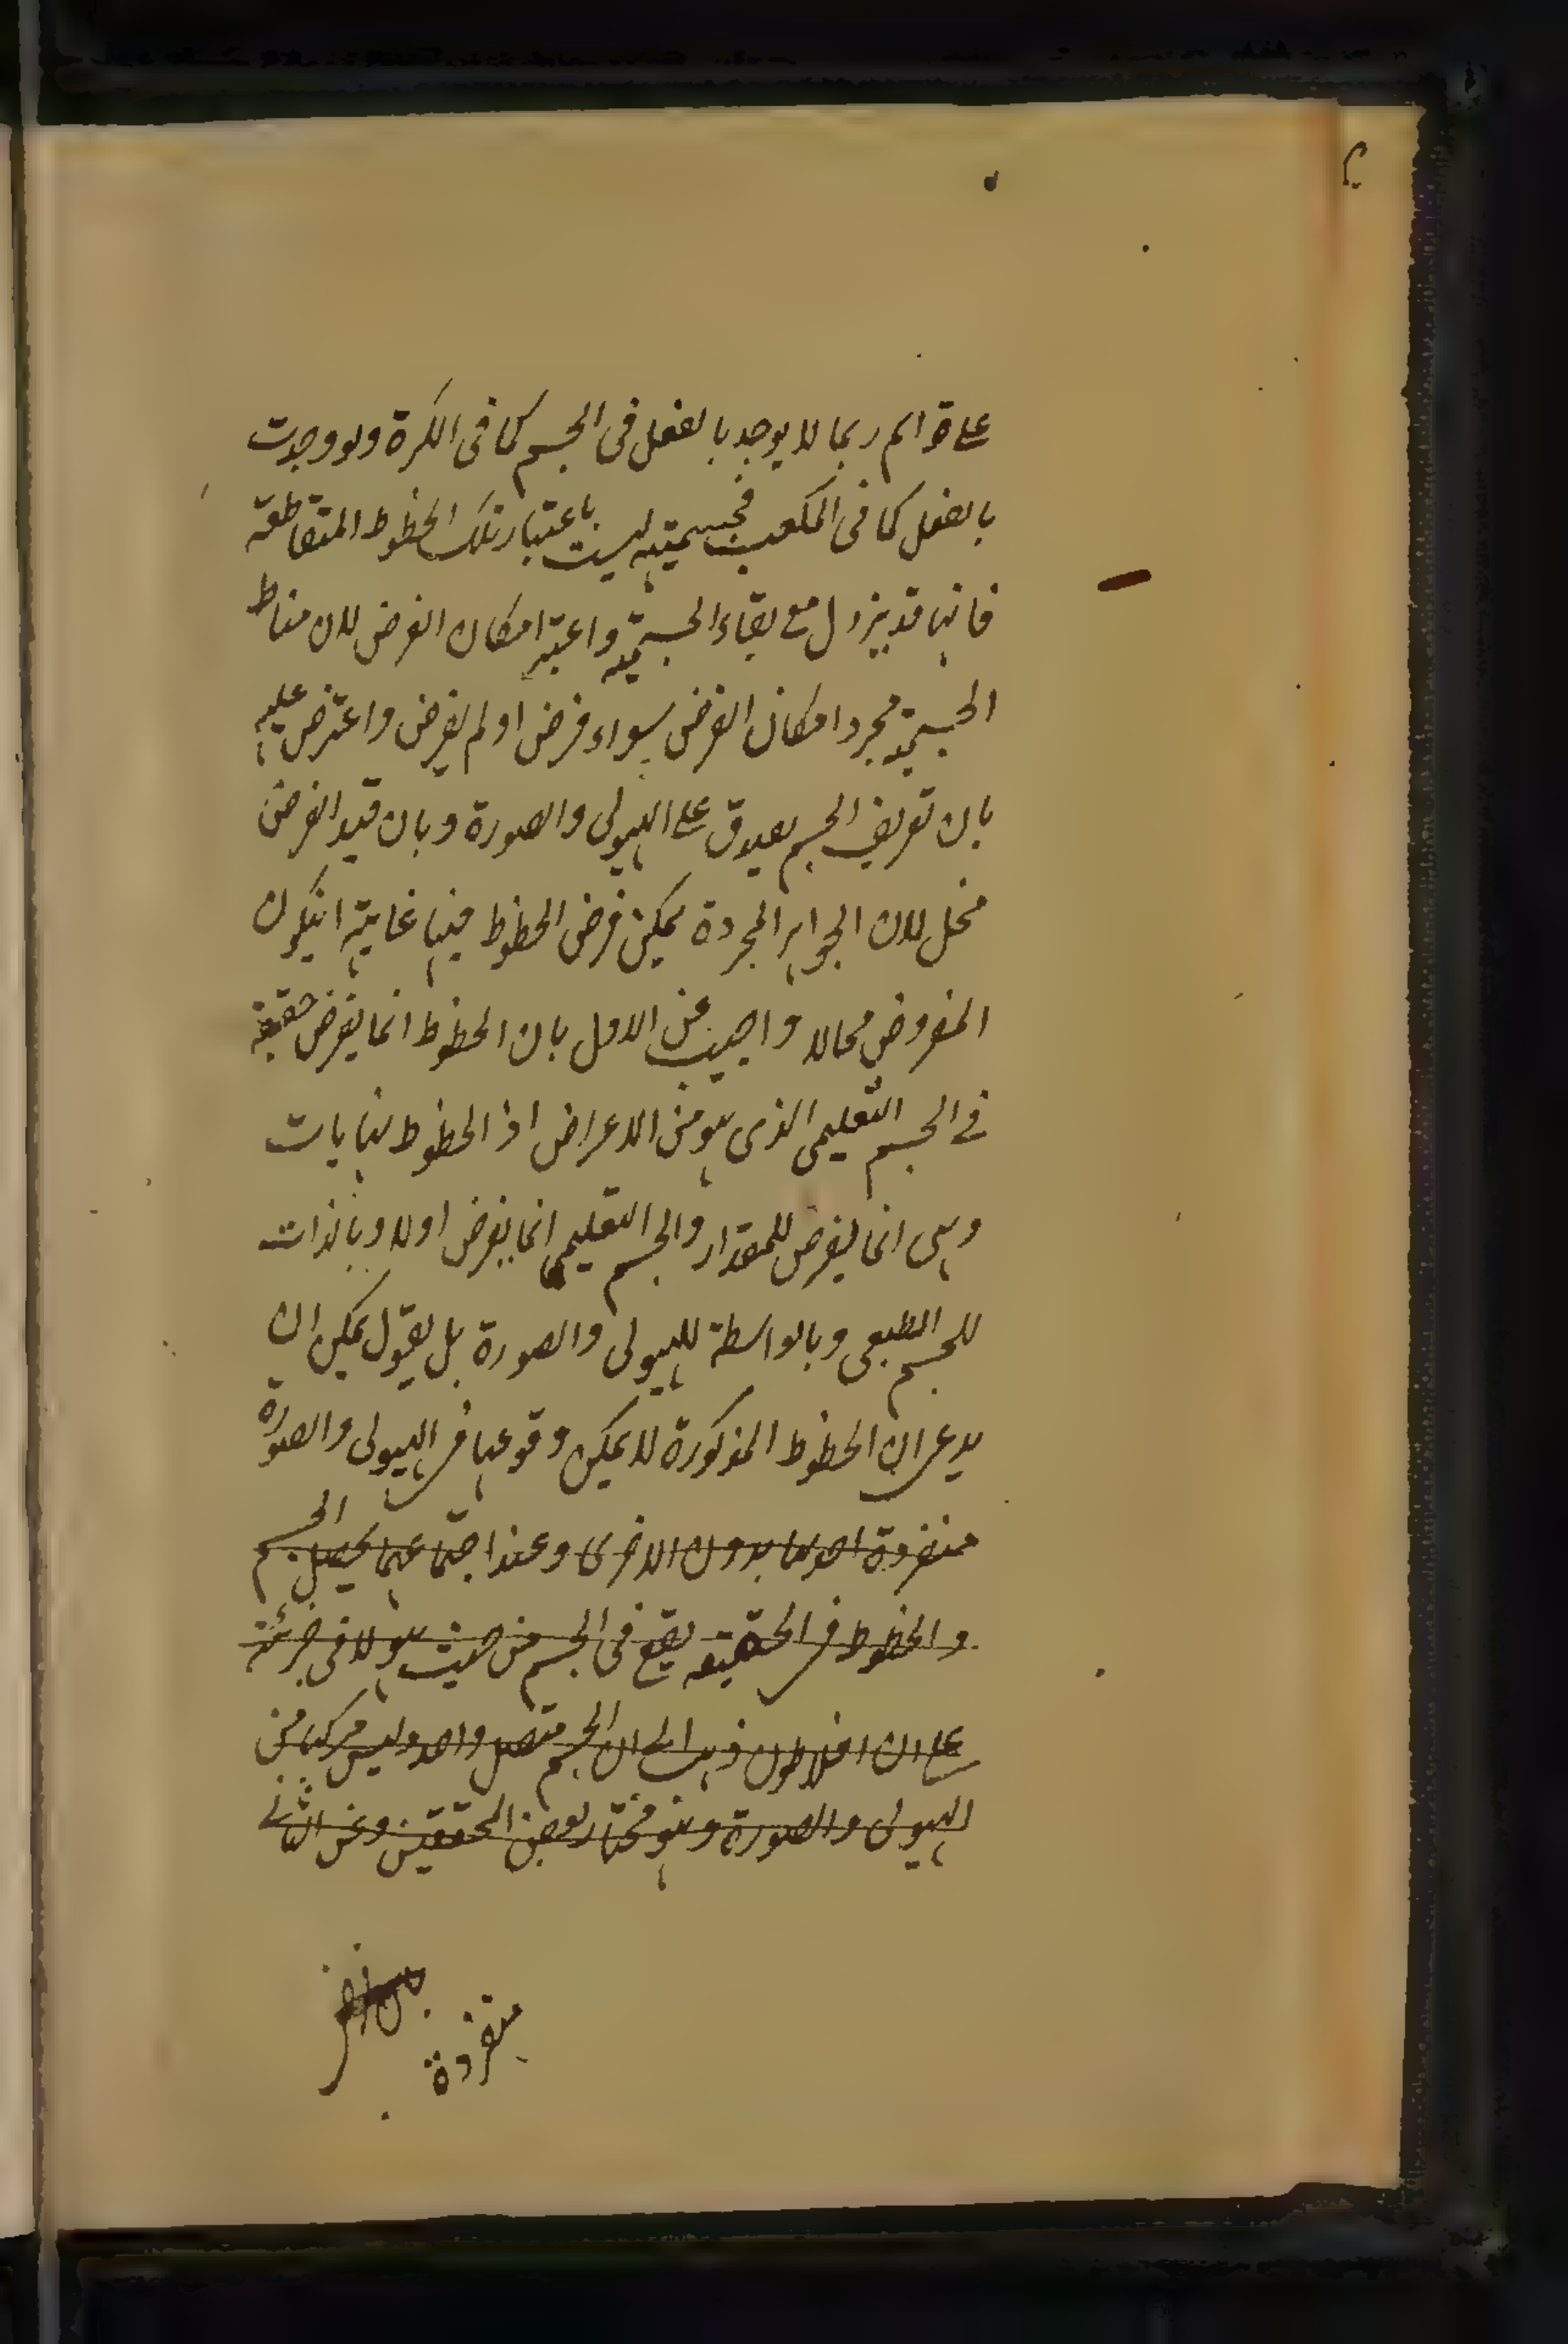 على قوائم ربما لا يوجد بالفعل فى الجسم كما فى الكرة ولو وجدت
بالفعل كما فى المكعب فجسميته ليست باعتبار تلك الخطوط المتقاطعة
فانها قد يزول مع بقاء الجسمية واعتبر امكان الفرض لان مناط
الجسمية مجرد امكان الفرض سواء فرض او لم يفرض واعترض عليه
بان تعريف الجسم يصدق على الهيولى والصورة وبان قيد الفرض
مخل لان الجواهر المجردة يمكن فرض الخطوط فيها غايته انيكون
المفروض محالا واجيب عن الاول بان الخطوط انما يفرض حقيقة
فے الجسم التعليمى الذى هو من الاعراض اذ الخطوط نهايات
وهى انما يفرض للمقدار والجسم التعليمى انما يفرض اولا وبالذات
للجسم الطبعى وبالواسطة للهيولى والصورة بل يقول يمكن ان
يدعى ان الخطوط المذكورة لا يمكن وقوعها فى الهيولى والصورة
منفردة احدهما بدون الاخرى وعند اجتماعهما يحصل الجسم
والخطوط فى الحقيقة يقع فى الجسم من حيث هو لا فى جزئيه
على ان افلاطون ذهب الى ان الجسم متصل واحد وليس مركبا من
الهيولى والصورة وهو مختار بعض المحققين وعن الثانے
منفردة